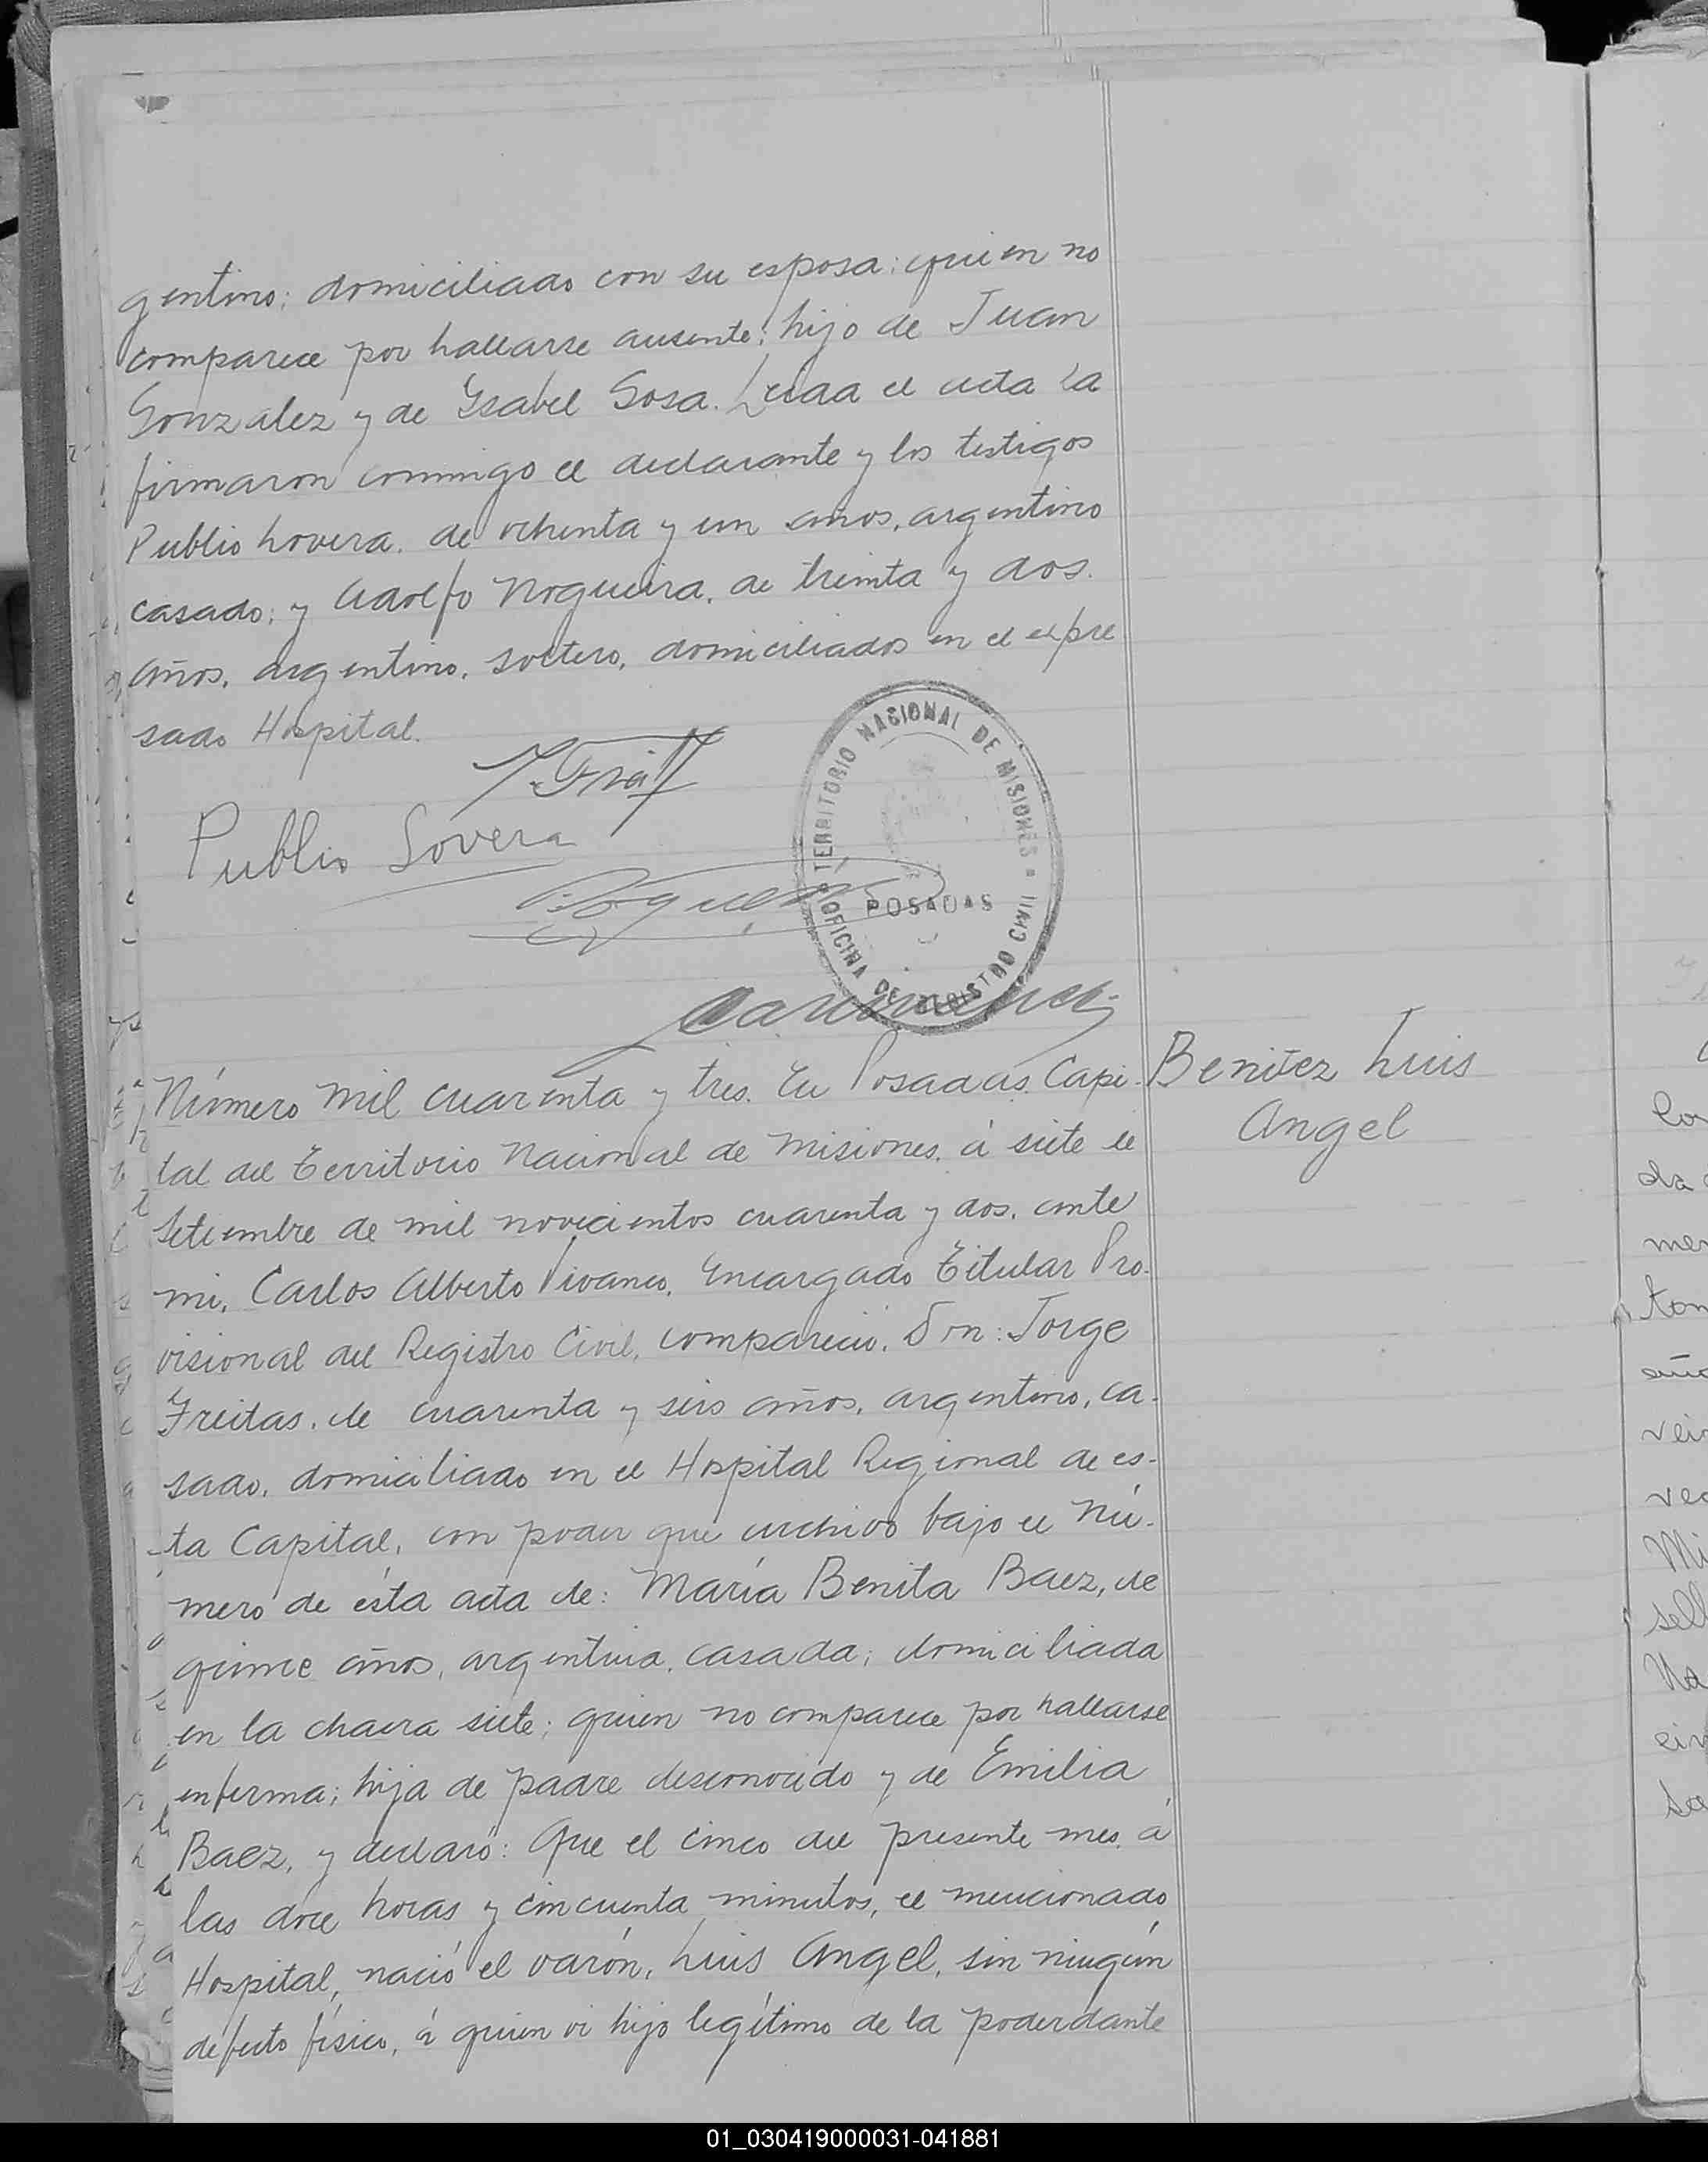 gentino; domiciliado con su esposa; quien no
comparece por hallarse ausente; hijo de Juan
Gonzalez y de Ysabel Sosa. Leida el acta la
firmaron conmigo el declarante y los testigos
Publio Lovera, de ochenta y un años, argentino
casado; y Adolfo Nogueira, de treinta y dos
años, argentino, soltero, domiciliados en el expre
sado Hospital.
Publio Lovera
TERRITORIO NACIONAL DE MISIONES
POSADAS
OFICINA DE REGISTRO CIVIL
Número mil cuarenta y tres. En Posadas, Capi-
tal del Territorio Nacional de Misiones, á siete de
Setiembre de mil novecientos cuarenta y dos, ante
mi, Carlos Alberto Vivanco, Encargado Titular Pro-
visional del Registro Civil, compareció, Don: Jorge
Freitas, de cuarenta y seis años, argentino, ca-
sado, domiciliado en el Hospital Regional de es-
ta Capital, con poder que archivo bajo el Nú-
mero de ésta acta de: María Benita Baez, de
quince años, argentina, casada; domiciliada
en la chacra siete; quien no comparece por hallarse
enferma; hija de padre desconocido y de Emilia
Baez, y declaró: Que el cinco del presente mes, á
las doce horas y cincuenta minutos, el mencionado
Hospital, nació el varón, Luis Angel, sin ningún
defecto físico, á quien vi hijo legítimo de la poderdante
Benitez Luis
Angel
01_030419000031-041881